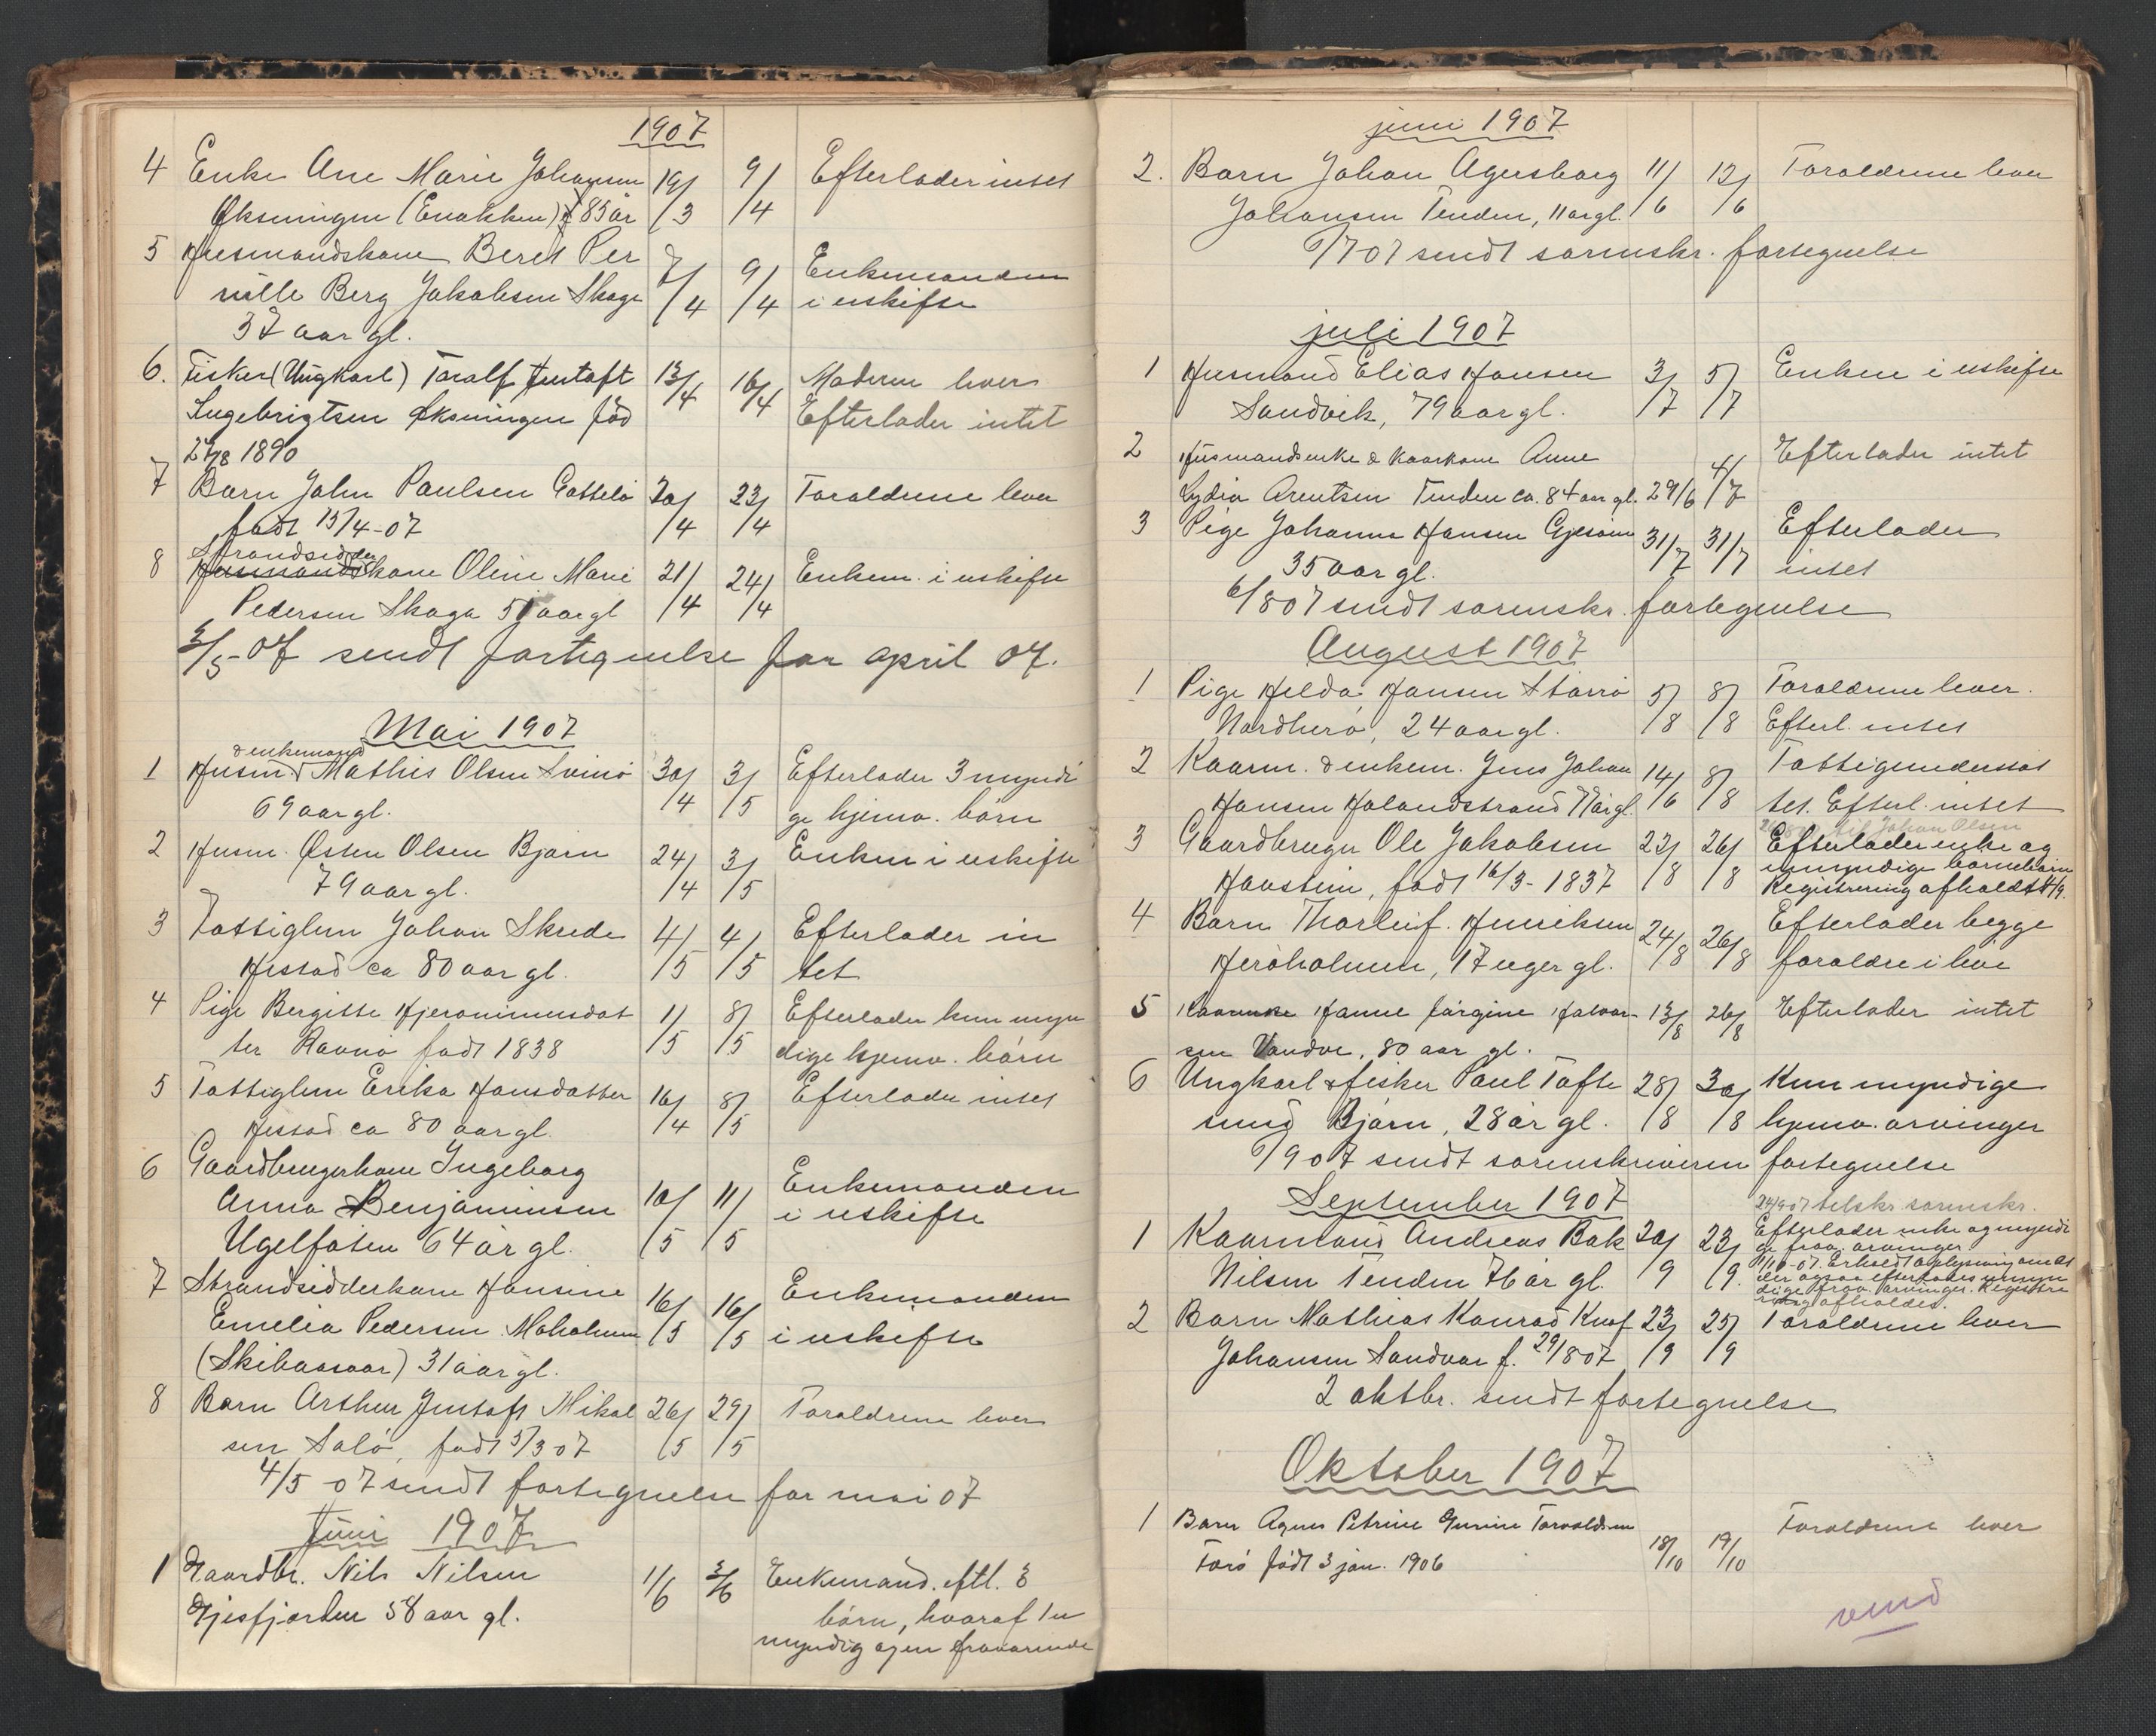 1907
4 Enke Ane Marie Johansen 19/3 9/4 Efterlader intet
Øksningen (Enokken) 85 år
5 Husmandskone Beret Per 7/4 9/4 Enkemanden
nille Berg Jakobsen Skaga i uskifte
37 aar gl.
6. Fisker (Ungkarl) Toralf Justoft 13/4 16/4 Moderen lever
Ingebrigtsen Øksningen föd Efterlader intet
27/8 1890
7 Barn John Paulsen 20/4 23/4 Forældrene lever
født 15/4-07
Strandsidder
8 Husmandskone Oline Marie 21/4 24/4 Enkem. i uskifte
Pedersen Skaga 51 aar gl
3/5-07 sendt fortegnelse for april 07.
Mai 1907
& enkemand
1 Husm. Mathis Olsen Svinö 30/4 3/5 Efterlader 3 myndi
69 aar gl. ge hjemv. börn
2 Husm. Østen Olsen Bjørn 24/4 3/5 Enken i uskifte
79 aar gl.
3 Fattiglem Johan Skrede 4/5 4/5 Efterlader in
Hestad ca 80 aar gl. tet
4 Pige Bergitte Hjeronimusdat 1/5 8/5 Efterlader kun myn
ter Ravnö født 1838 dige hjemv. börn
5 Fattiglem Erika Hansdatter 16/4 8/5 Efterlader intet
Hestad ca 80 aar gl.
6 Gaardbrugerkone Ingeborg
Anna Benjaminsen 10/5 11/5 Enkemanden
Ugelfaten 64 år gl. i uskifte
7 Strandsidderkone Hansine 16/5 16/5 Enkemanden
Emelia Pedersen Moholmen i uskifte
(Skibaasvær) 31 aar gl.
8 Barn Arthur Justoft Mikal 26/5 29/5 Forældrene lever
sen Salö, født 5/3 07
4/5 07 sendt fortegnelse for mai 07
Juni 1907
1 Gaardbr. Nils Nilsen 1/6 3/6 Enkemand. eftl. 3
Gjesfjorden 58 aar gl. börn, hvoraf 1 u
myndig og en fraværende
juni 1907
2. Barn Johan Agersborg 11/6 12/6 Forældrene lever
Johansen Tenden, 11 år gl.
6/7 07 sendt sorenskr. fortegnelse
juli 1907
1 Husmand Elias Hansen 3/7 5/7 Enken i uskifte
Sandvik, 79 aar gl.
2 Husmandsenke & kaarkone Anne Efterlader intet
Lydia Arentsen Tenden ca. 84 aar gl. 29/6 4/7
3 Pige Johanna Hansen Gjesöen 31/7 31/7 Efterlader
35 aar gl. intet
6/8 07 sendt sorenskr. fortegnelse
August 1907
1 Pige Helda Hansen Störrö 5/8 8/8 Forældrene lever.
Nordherö, 24 aar gl. Efterl. intet
2 Kaarm. & enkem. Jens Johan 14/6 8/8 Fattigunderstöt
Hansen Holandstrand 77 år gl. tet. Efterl. intet
3 Gaardbruger Ole Jakobsen 23/8 26/8 Efterlader enke og
Havstein, født 16/3-1837 umyndige barnebörn
Registrering afholdt 4/9.
4 Barn Thorleif Henriksen 24/8 26/8 Efterlader begge
Heröholmen, 17 uger gl. forældre i live
5 Kaarenke Hanne Jørgine Halvor- 13/8 26/8 Efterlader intet
sen Vandve, 80 aar gl.
6 Ungkarl & fisker Paul Tofte 28/8 30/8 Kun myndige
sund Bjørn, 28 år gl. hjemv. arvinger
6/9 07 sendt sorenskriveren fortegnelse
September 1907 24/9 07 tilskr. sorenskr.
1 Kaarmand Andreas Bak 20/9 23/9. Efterlader enke og myndi
Nilsen Tenden 76 år gl. ge frav. arvinger
1/10-07. Erholdt oplysning om at
der ogsaa efterlades umyn
dige frav. arvinger. Registre
ring afholdes.
2 Barn Mathias Konrad Knof 23/9 25/9 Forældrene lever
Johansen Sandvær f. 29/8 07
2 oktbr. sendt fortegnelse
Oktober 1907
1 Barn Agnes Petrine Gurine Torvaldsen 18/10 19/10 Forældrene lever
Torö födt 3 jan. 1906
vend